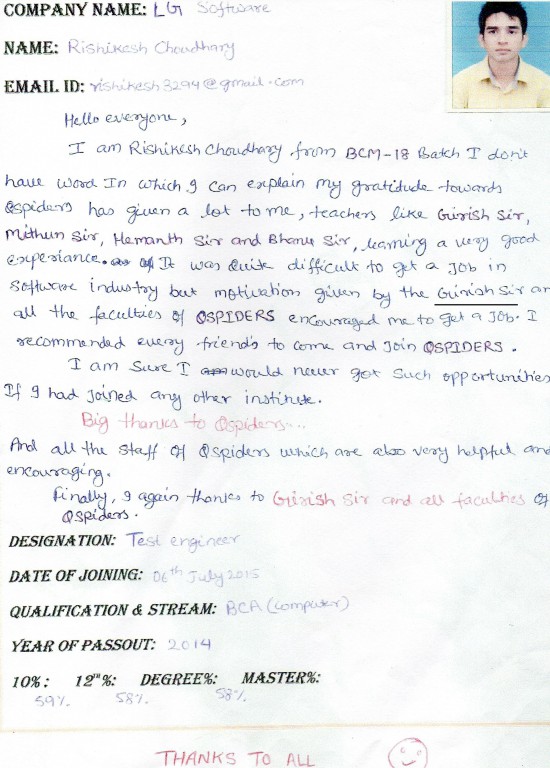 COMPANY NAME: LG Software
NAME: Rishikesh Choudhary
EMAIL ID: rishikesh3294@gmail.com
Hello everyone,
I am Rishikesh Choudhary from BCM-18 Batch I don't
have word In which I can explain my gratitude towards
Qspiders has given a lot to me, teachers like Girish Sir,
Mithun Sir, Hemanth Sir and Bhanu Sir, learning a very good
experiance. It was Quite difficult to get a Job in
Software industry but motivation given by the Girish Sir an
all the faculties of QSPIDERS encouraged me to get a Job. I
recommended every friends to come and Join QSPIDERS.
I am Sure I would never got Such opportunities
If I had Joined any other institute.
Big thanks to Qspiders...
And all the Staff of Qspiders which are also very helpful and
encouraging.
Finally, I again thanks to Girish Sir and all faculties of
Qspiders.
DESIGNATION: Test engineer
DATE OF JOINING: 06th July 2015
QUALIFICATION & STREAM: BCA (computer)
YEAR OF PASSOUT: 2014
10%: 12th%: DEGREE%: MASTER%:
59%. 58%. 58%.
THANKS TO ALL